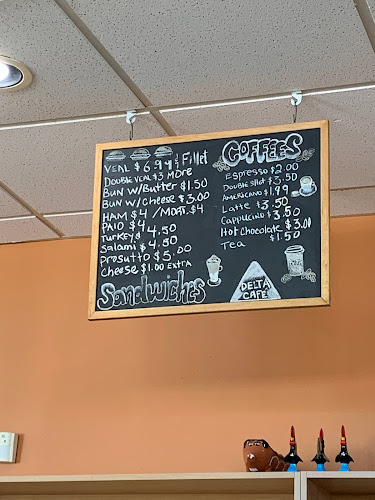 VEAL $6.99 Fillet
DOUBLE VEAL $3 MORE
BUN W/Butter $1.50
BUN W/Cheese $3.00
HAM $4 /MORT. $4
PAIO $4
Turkey $4.50
Salami $4.50
Prosutto $5.00
Cheese $1.00 EXTRA
Sandwiches
COFFEES
Espresso $2.00
DOUBLE SHOT $3.50
AMERICANO $1.99
Latte $3.50
Cappuccino $3.50
Hot Chocolate $3.00
Tea $1.50
DELTA
CAFE